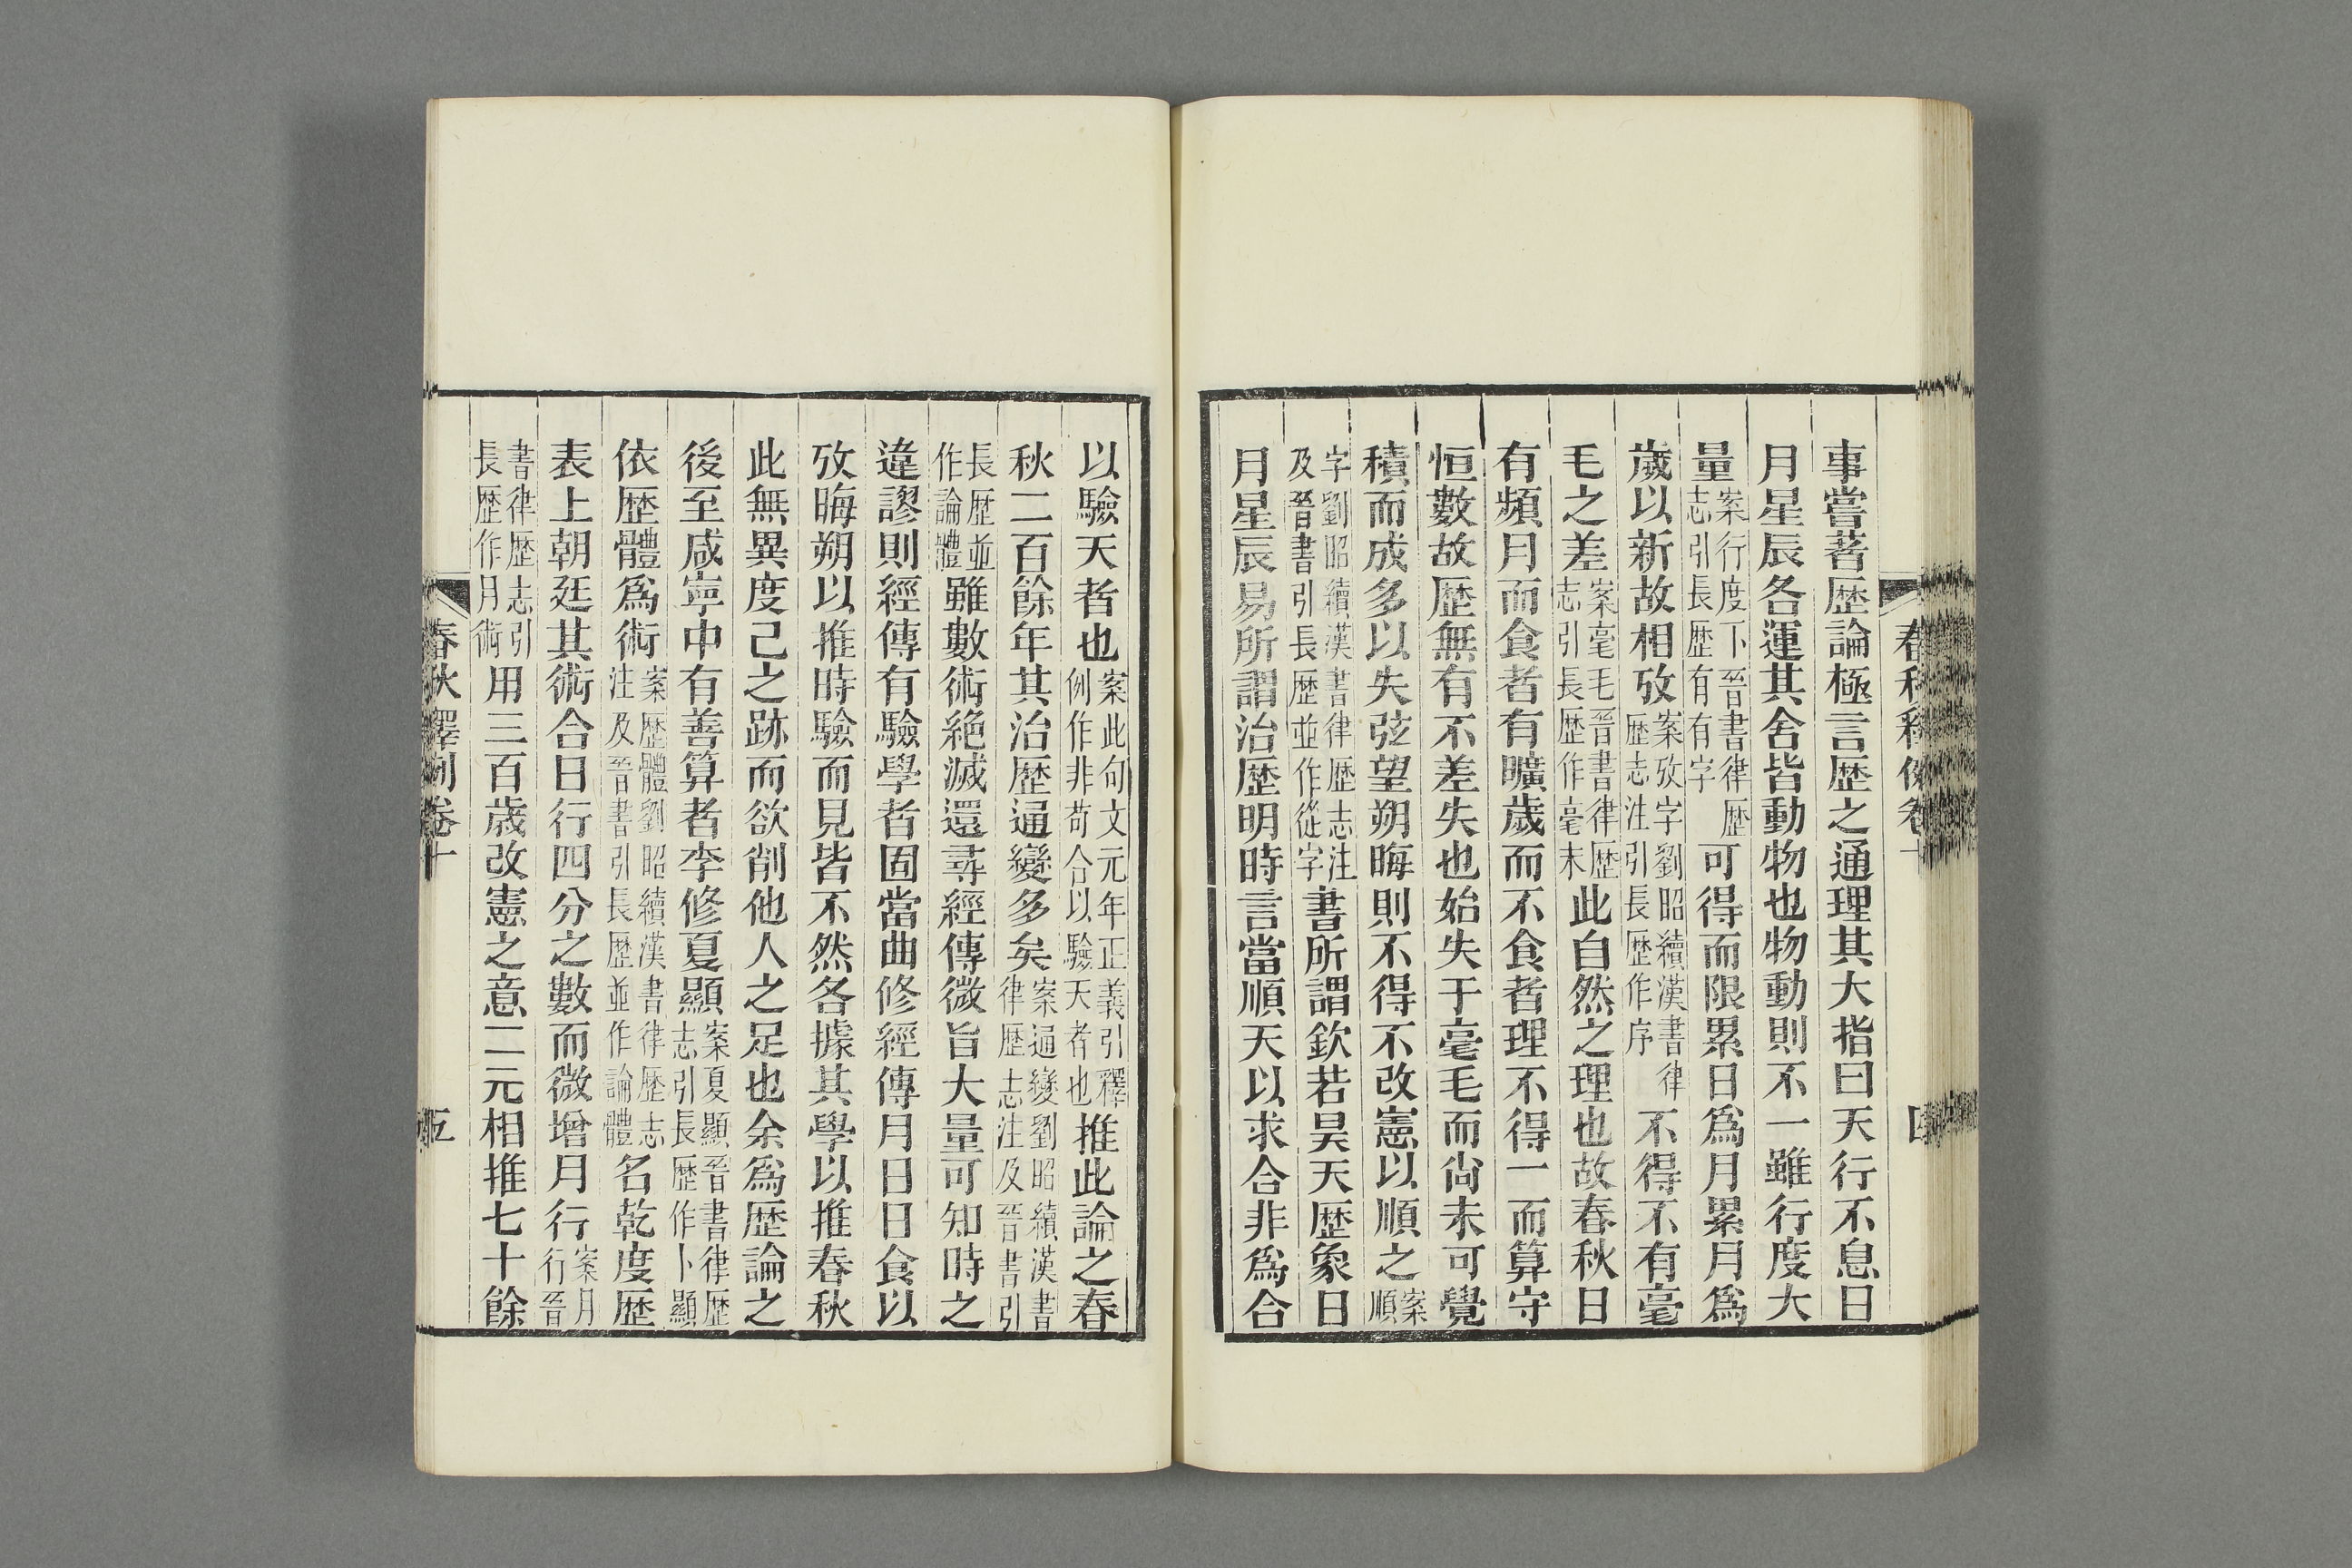 春秋釋例卷十
四
事嘗著歷論極言歷之通理其大指曰天行不息日
月星辰各運其舍皆動物也物動則不一雖行度大
量案行度下晉書律歷志引長歷有有字可得而限累日爲月累月爲
歲以新故相攷案攷字劉昭續漢書律歷志注引長歷作序不得不有毫
毛之差案毫毛晉書律歷志引長歷作毫末此自然之理也故春秋日
有頻月而食者有曠歲而不食者理不得一而算守
恒數故歷無有不差失也始失于毫毛而尙未可覺
積而成多以失弦望朔晦則不得不改憲以順之案順
字劉昭續漢書律歷志注及晉書引長歷並作從字書所謂欽若昊天歷象日
月星辰易所謂治歷明時言當順天以求合非爲合
以驗天者也案此句文元年正義引釋例作非苟合以驗天者也推此論之春
秋二百餘年其治歷通變多矣案通變劉昭續漢書律歷志注及晉書引
長歷並作論體雖數術絶滅還尋經傳微旨大量可知時之
違謬則經傳有驗學者固當曲修經傳月日日食以
攷晦朔以推時驗而見皆不然各據其學以推春秋
此無異度己之跡而欲削他人之足也余爲歷論之
後至咸寧中有善算者李修夏顯案夏顯晉書律歷志引長歷作卜顯
依歷體爲術案歷體劉昭續漢書律歷志注及晉書引長歷並作論體名乾度歷
表上朝廷其術合日行四分之數而微增月行案月行晉
書律歷志引長歷作月術用三百歲改憲之意二元相推七十餘
春秋釋例卷十
五